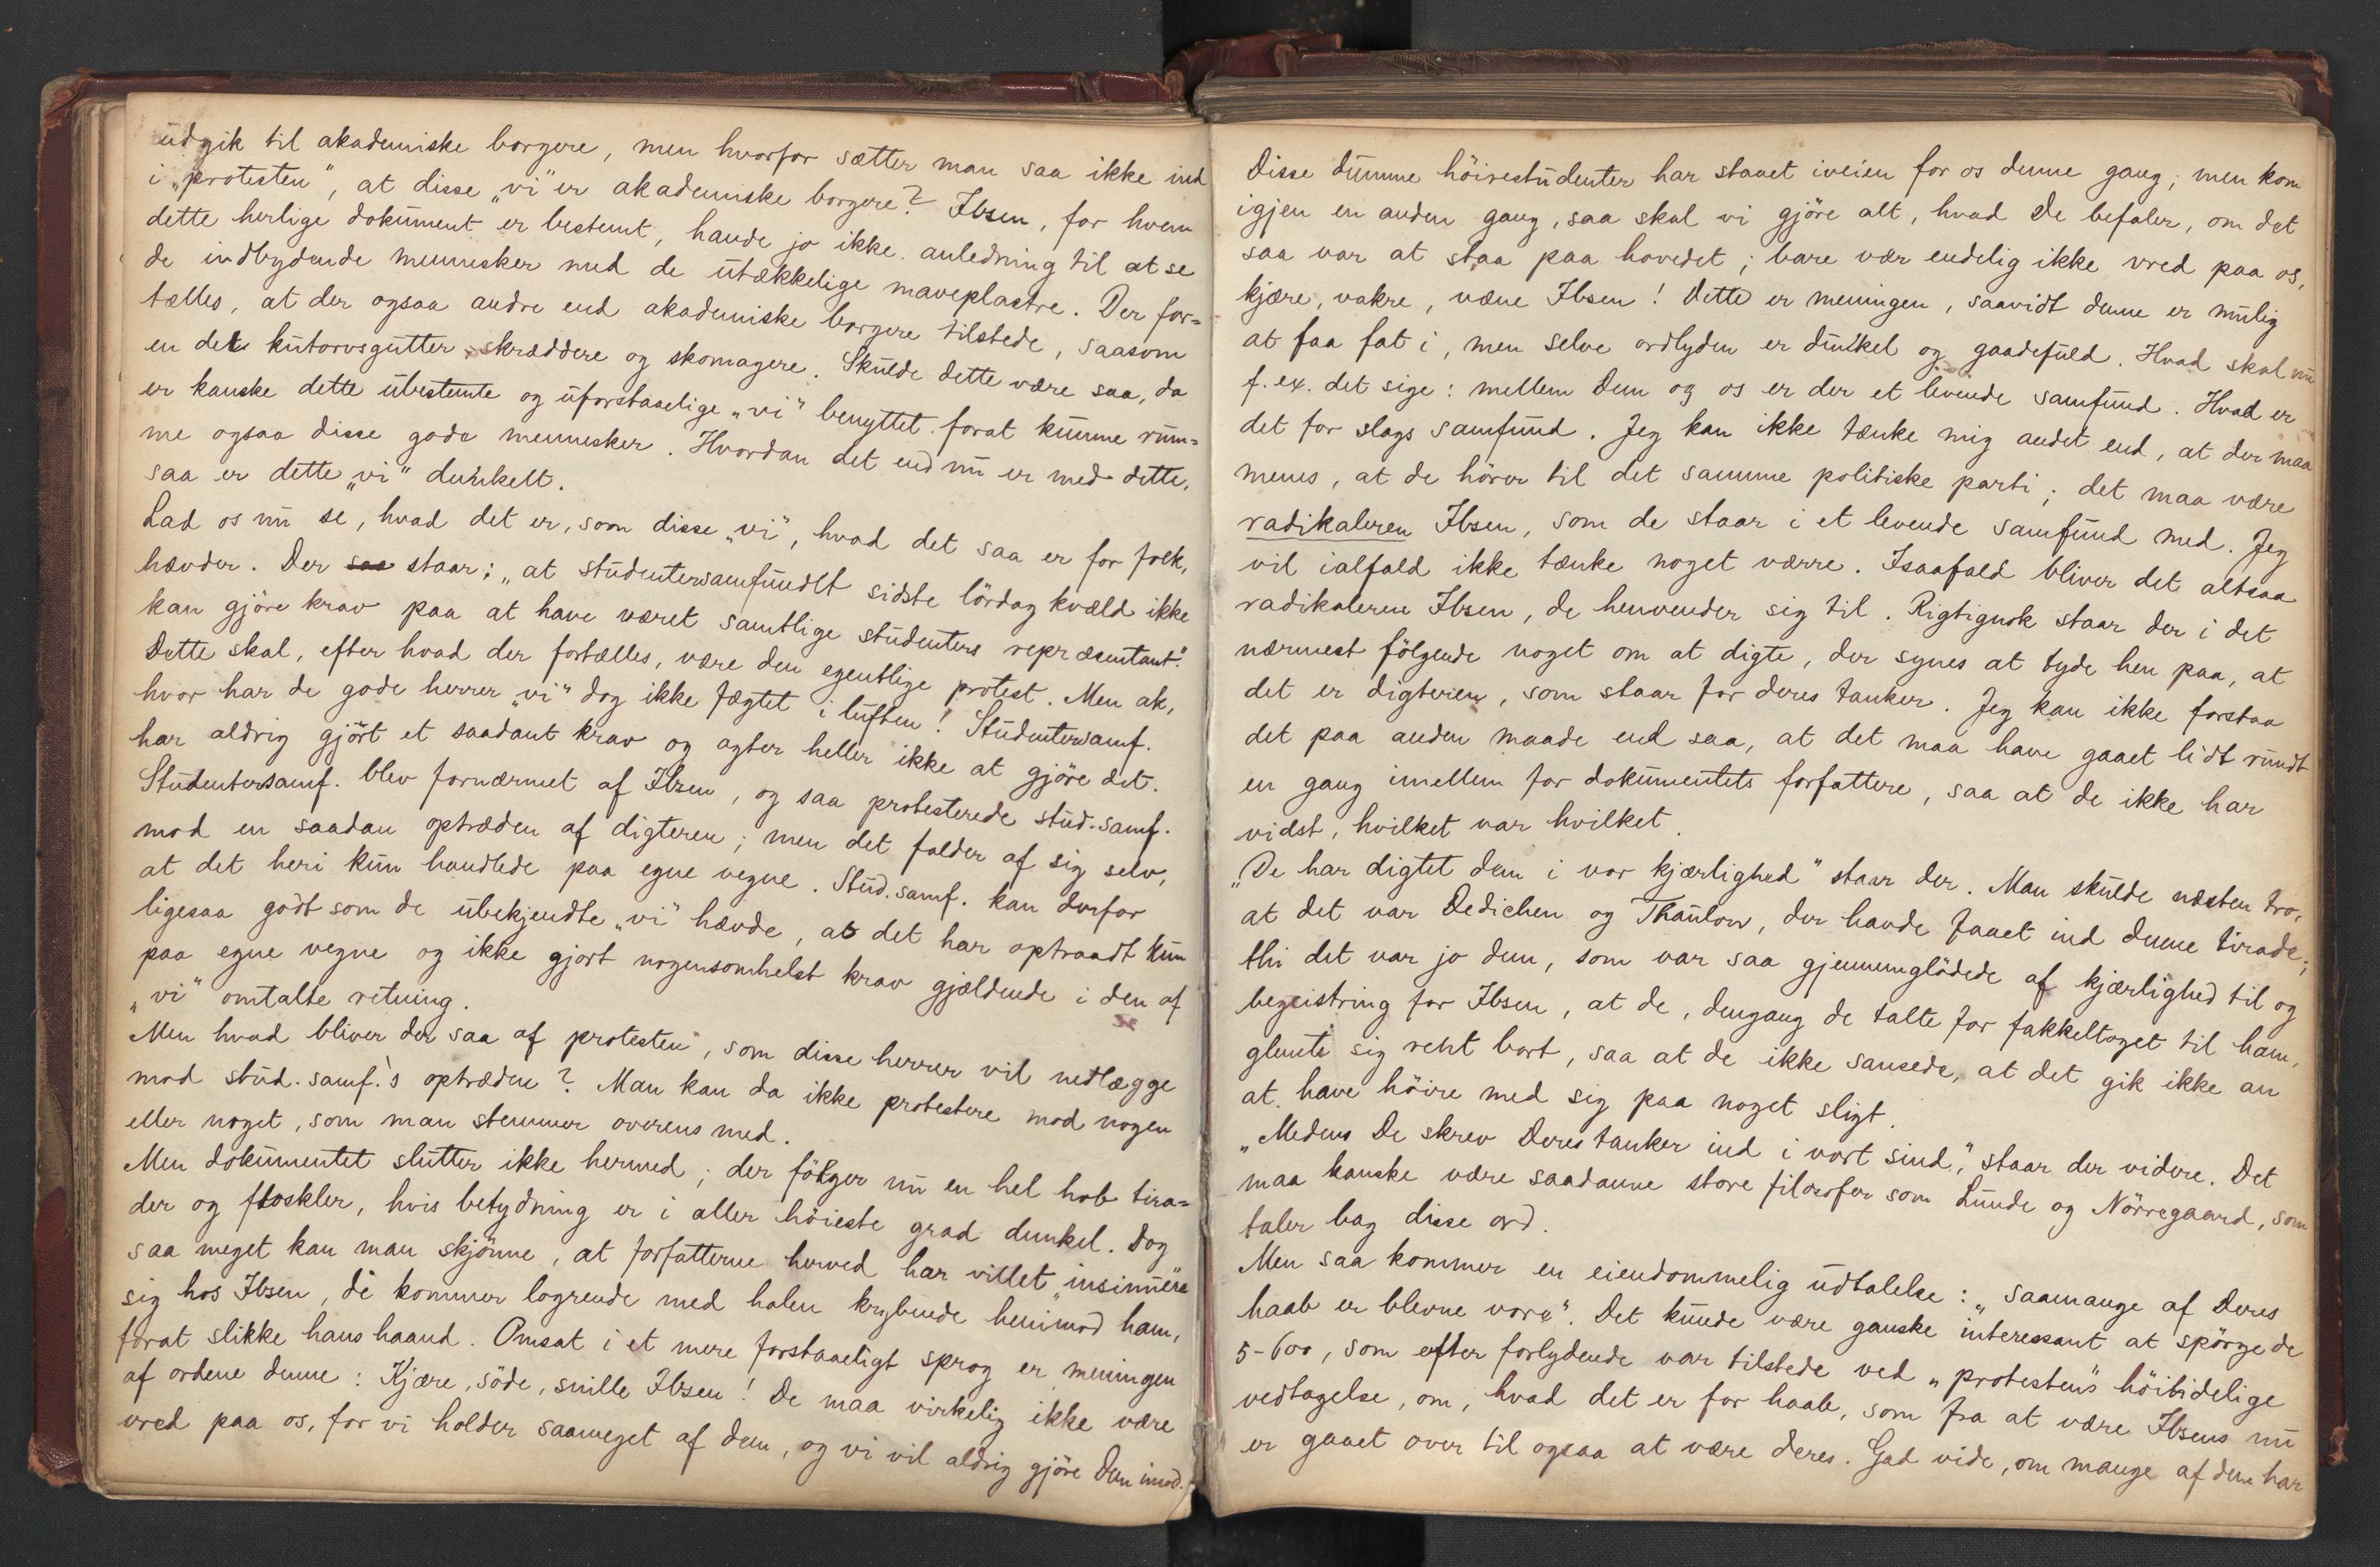 udgik til akademiske borgere, men hvorfor sætter man saa ikke ind
i „protesten“, at disse „vi“ er akademiske borgere? Ibsen, for hvem
dette herlige dokument er bestemt, havde jo ikke anledning til at se
de indbydende mennesker med de utækkelige maveplastre. Der for=
tælles, at der ogsaa andre end akademiske borgere tilstede, saasom
en dels kutorvsgutter, skræddere og skomagere. Skulde dette være saa, da
er kanske dette ubestemte og uforstaaelige „vi“ benyttet forat kunne rum=
me ogsaa disse gode mennesker. Hvordan det end nu er med dette,
saa er dette „vi“ dunkelt.
Lad os nu se, hvad det er, som disse „vi“, hvad det saa er for folk,
hævder. Der saa staar: „at studentersamfundet sidste lördag kvæld ikke
kan gjöre krav paa at have været samtlige studenters repræsentant“.
Dette skal, efter hvad der fortælles, være den egentlige protest. Men ak,
hvor har de gode herrer „vi“ dog ikke fægtet i luften! Studentersamf.
har aldrig gjört et saadant krav og agter heller ikke at gjöre det.
Studentersamf. blev fornærmet af Ibsen, og saa protesterede stud. samf.
mod en saadan optræden af digteren; men det falder af sig selv,
at det heri kun handlede paa egne vegne. Stud. samf. kan derfor
ligesaa godt som de ubekjendte „vi“ hævde, at det har optraadt kun
paa egne vegne og ikke gjort nogensomhelst krav gjældende i den af
„vi“ omtalte retning.
Men hvad bliver der saa af protesten, som disse herrer vil nedlægge
mod stud. samf.'s optræden? Man kan da ikke protestere mod nogen
eller noget, som man stemmer overens med.
Men dokumentet slutter ikke hermed; der fölger nu en hel hob tira=
der og floskler, hvis betydning er i aller höieste grad dunkel. Dog
saa meget kan man skjönne, at forfatterne herved har villet insinuere
sig hos Ibsen, de kommer logrende med halen krybende henimod ham,
forat slikke hans haand. Omsat i et mere forstaaeligt sprog er meningen
af ordene denne: Kjære, söde, snille Ibsen! De maa virkelig ikke være
vred paa os, for vi holder saameget af dem, og vi vil aldrig gjöre Dem imod.
Disse dumme höirestudenter har staaet iveien for os denne gang; men kom
igjen en anden gang, saa skal vi gjöre alt, hvad De befaler, om det
saa var at staa paa hovedet; bare vær endelig ikke vred paa os,
kjære, vakre, væne Ibsen! Dette er meningen, saavidt denne er mulig
at faa fat i, men selve ordlyden er dunkel og gaadefuld. Hvad skal nu
f. ex. det sige: mellem Dem og os er der et levende samfund. Hvad er
det for slags samfund. Jeg kan ikke tænke mig andet end, at der maa
menes, at de hörer til det samme politiske parti; det maa være
radikaleren Ibsen, som de staar i et levende samfund med. Jeg
vil ialfald ikke tænke noget værre. Isaafald bliver det altsaa
radikaleren Ibsen, de henvender sig til. Rigtignok staar der i det
nærmest fölgende noget om at digte, der synes at tyde hen paa, at
det er digteren, som staar for deres tanker. Jeg kan ikke forstaa
det paa anden maade end saa, at det maa have gaaet lidt rundt
en gang imellem for dokumentets forfattere, saa at de ikke har
vidst, hvilket var hvilket.
„De har digtet dem i vor kjærlighed“ staar der. Man skulde næsten tro,
at det var Dedichen og Thaulow, der havde faaet ind denne tirade;
thi det var jo dem, som var saa gjennemglödede af kjærlighed til og
begeistring for Ibsen, at de, dengang de talte for fakkeltoget til ham,
glemte sig rent bort, saa at de ikke sansede, at det gik ikke an
at have höire med sig paa noget sligt.
„Medens De skrev Deres tanker ind i vort sind“, staar der videre. Det
maa kanske være saadanne store filosofer som Lunde og Nörregaard, som
taler bag disse ord.
Men saa kommer en eiendommelig udtalelse: „saamange af Deres
haab er blevne vore“. Det kunde være ganske interessant at spörge de
5-600, som efter forlydende var tilstede ved „protesten“s höitidelige
vedtagelse, om, hvad det er for haab, som fra at være Ibsens nu
er gaaet over til ogsaa at være deres. Gad vide, om mange af dem har